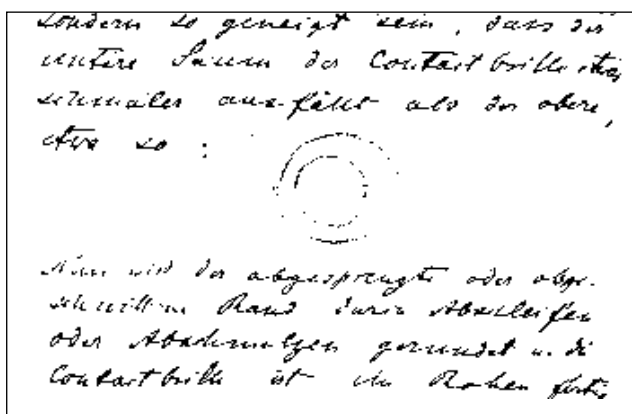 sondern so geneigt sein, dass der
untere Saum der Contactbrille etwas
schmäler ausfällt als der obere,
etwa so :
Nun wird der abgesprengte oder abge-
schnittene Rand durch Abschleifen
oder Abschmelzen gerundet u. die
Contactbrille ist im Rohen fertig